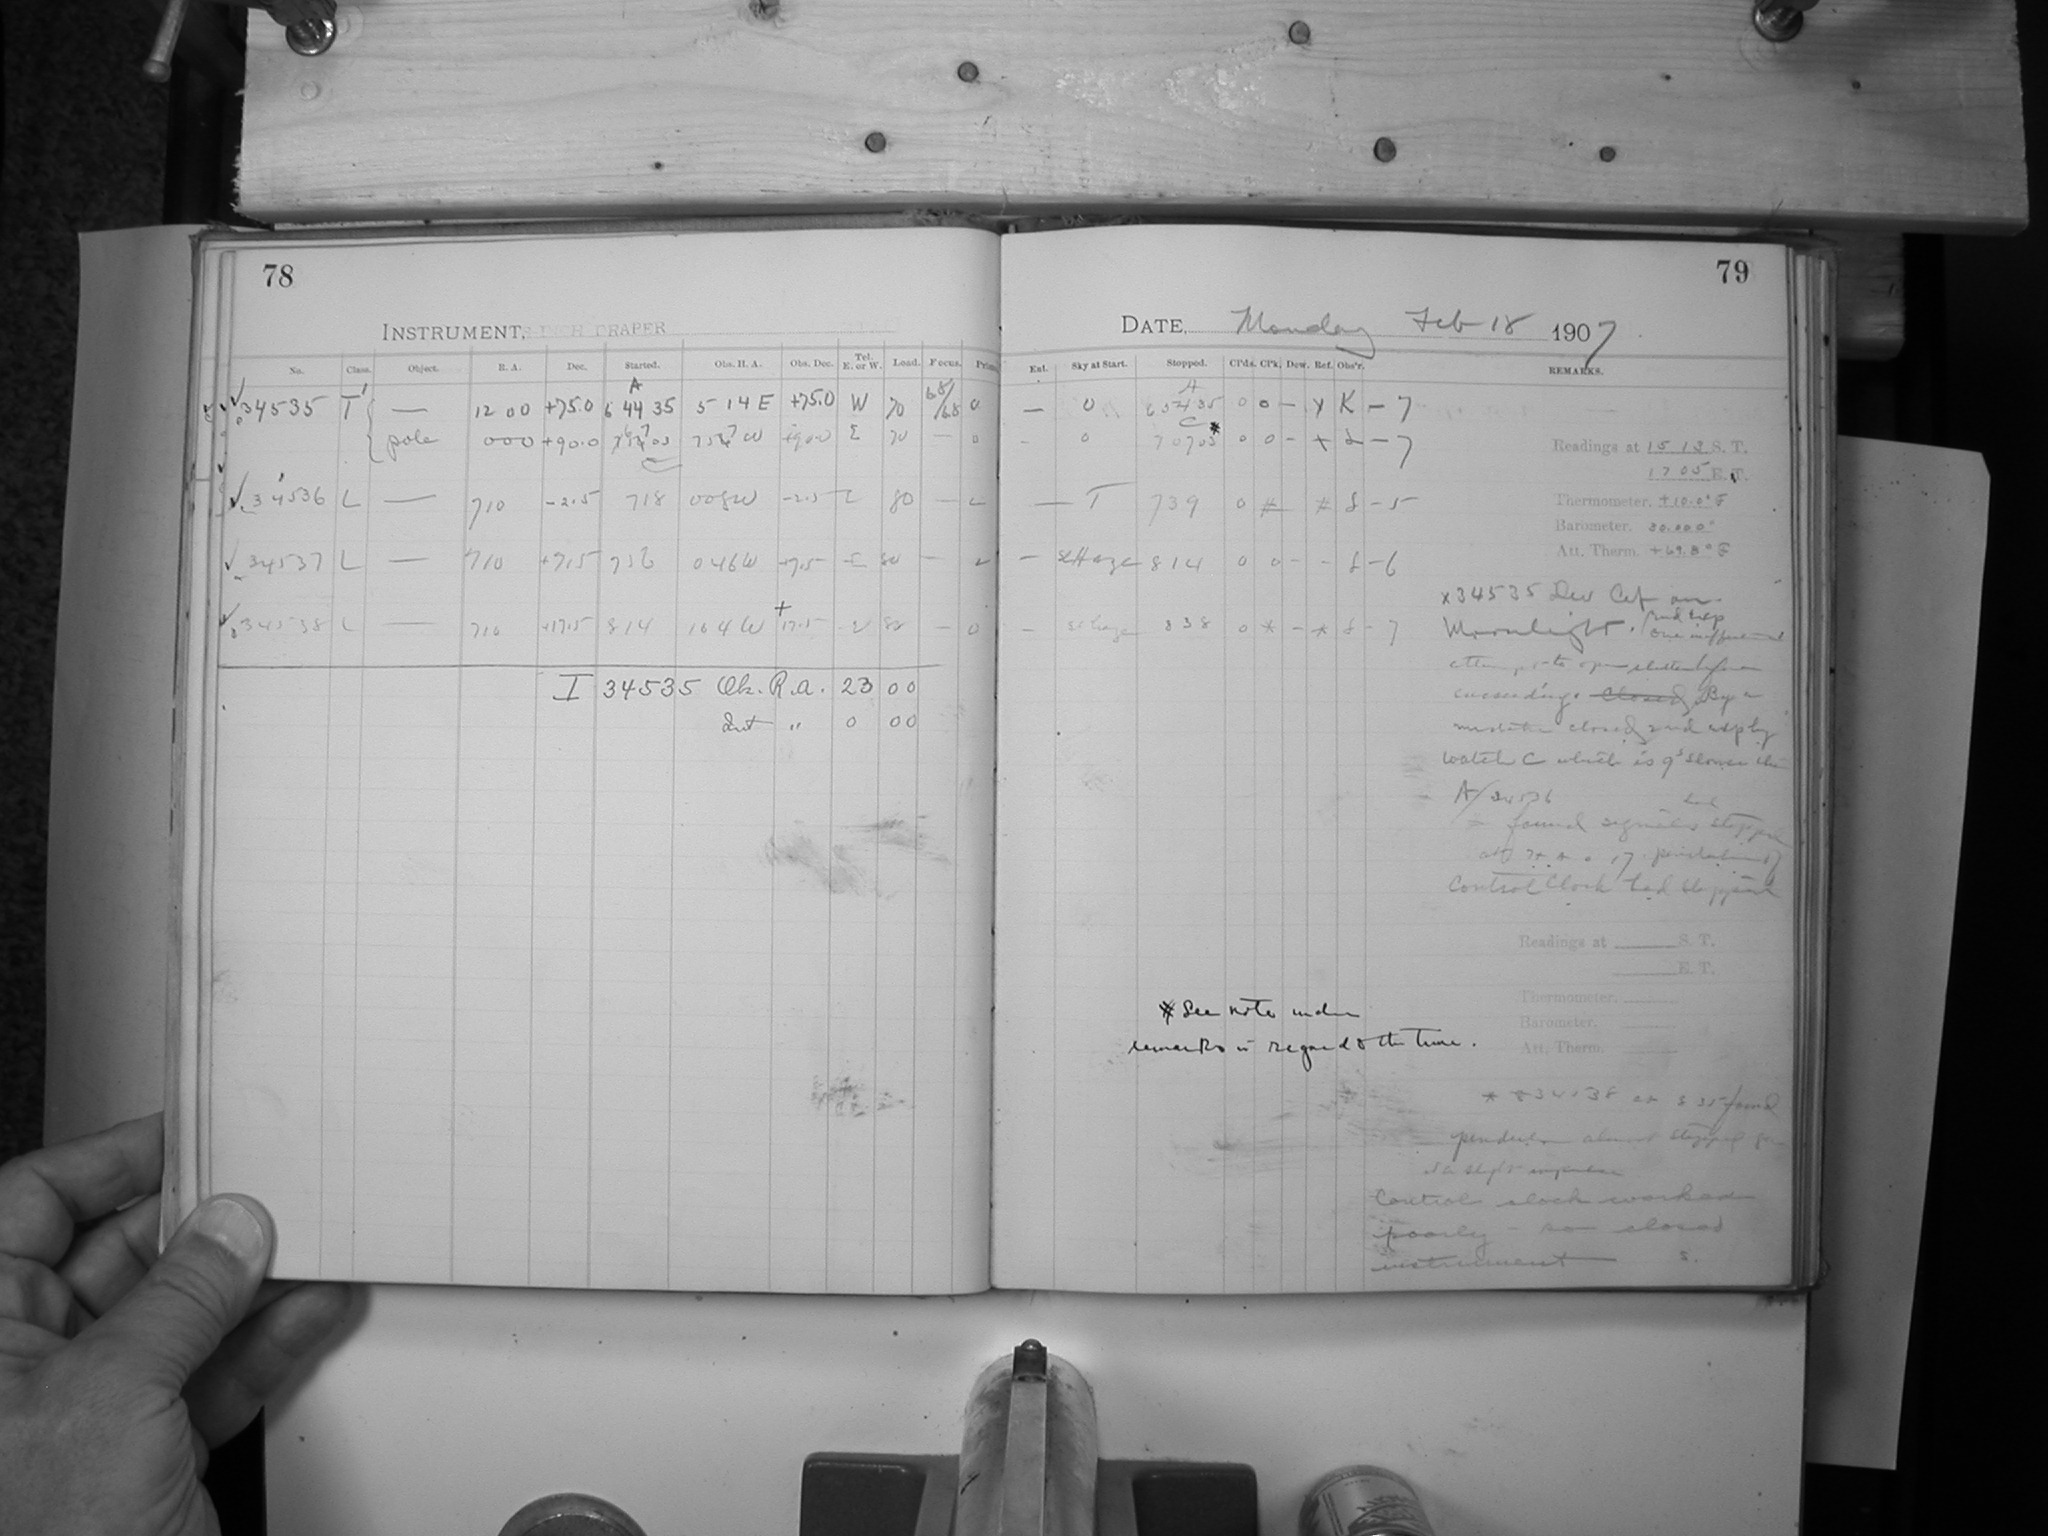 78
INSTRUMENT, 8 INCH DRAPER
No. Class. Object. R. A. Dec. Started. Obs. H. A. Obs. Dec. Tel. E. or W. Load. Focus.
34535 T — 12 00 +75.0 A 6 44 35 5 14 E +75.0 W 70 68/68 0
pole 0 00 +90.0 +90.0 E 70 — 0
34536 L — 7 10 -2.5 7 18 0 08 W -2.5 80 —
34537 L — 7 10 +7.5 7 56 0 46 W +7.5 E 80 —
34538 L — 7 10 +17.5 8 14 1 04 W +17.5 80 — 0
I 34535 Ok. R.A. 23 00
" 0 00
79
DATE, Monday Feb 18 1907
Ent. Sky at Start. Stopped. Cl'ds. Cl'k. Dew. Ref. Obs'r. REMARKS.
— 0 A 6 54 35 0 0 — x K — 7
- 0 C 7 07 05 * 0 0 - x S - 7
— T 7 39 0 * * S - 5
— sl Haze 8 14 0 0 - - S - 6
— sl haze 8 38 0 * - * S - 7
Readings at 15 12 S. T.
17 05 E. T.
Thermometer. +10.0° F
Barometer. 30.000"
Att. Therm. +69.8° F
x 34535 Dew Cap on.
Moonlight. 2nd exp
one
attempt to open shutter before
succeeding. Closed By a
mistake closed 2nd exp by
watch C which is 9s slower than
A/34536
found stopped
at pendulum of
Control Clock had stopped
Readings at S. T.
E. T.
Thermometer.
Barometer.
Att. Therm.
* See notes under
remarks in regard to the time.
* 34538 at 8 35 found
pendulum almost stopped
it a slight impulse
Control clock worked
poorly - so closed
instrument S.